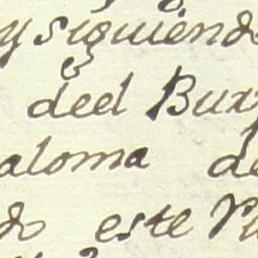 y siguiendo
deel Bux
aloma de
do este Pu